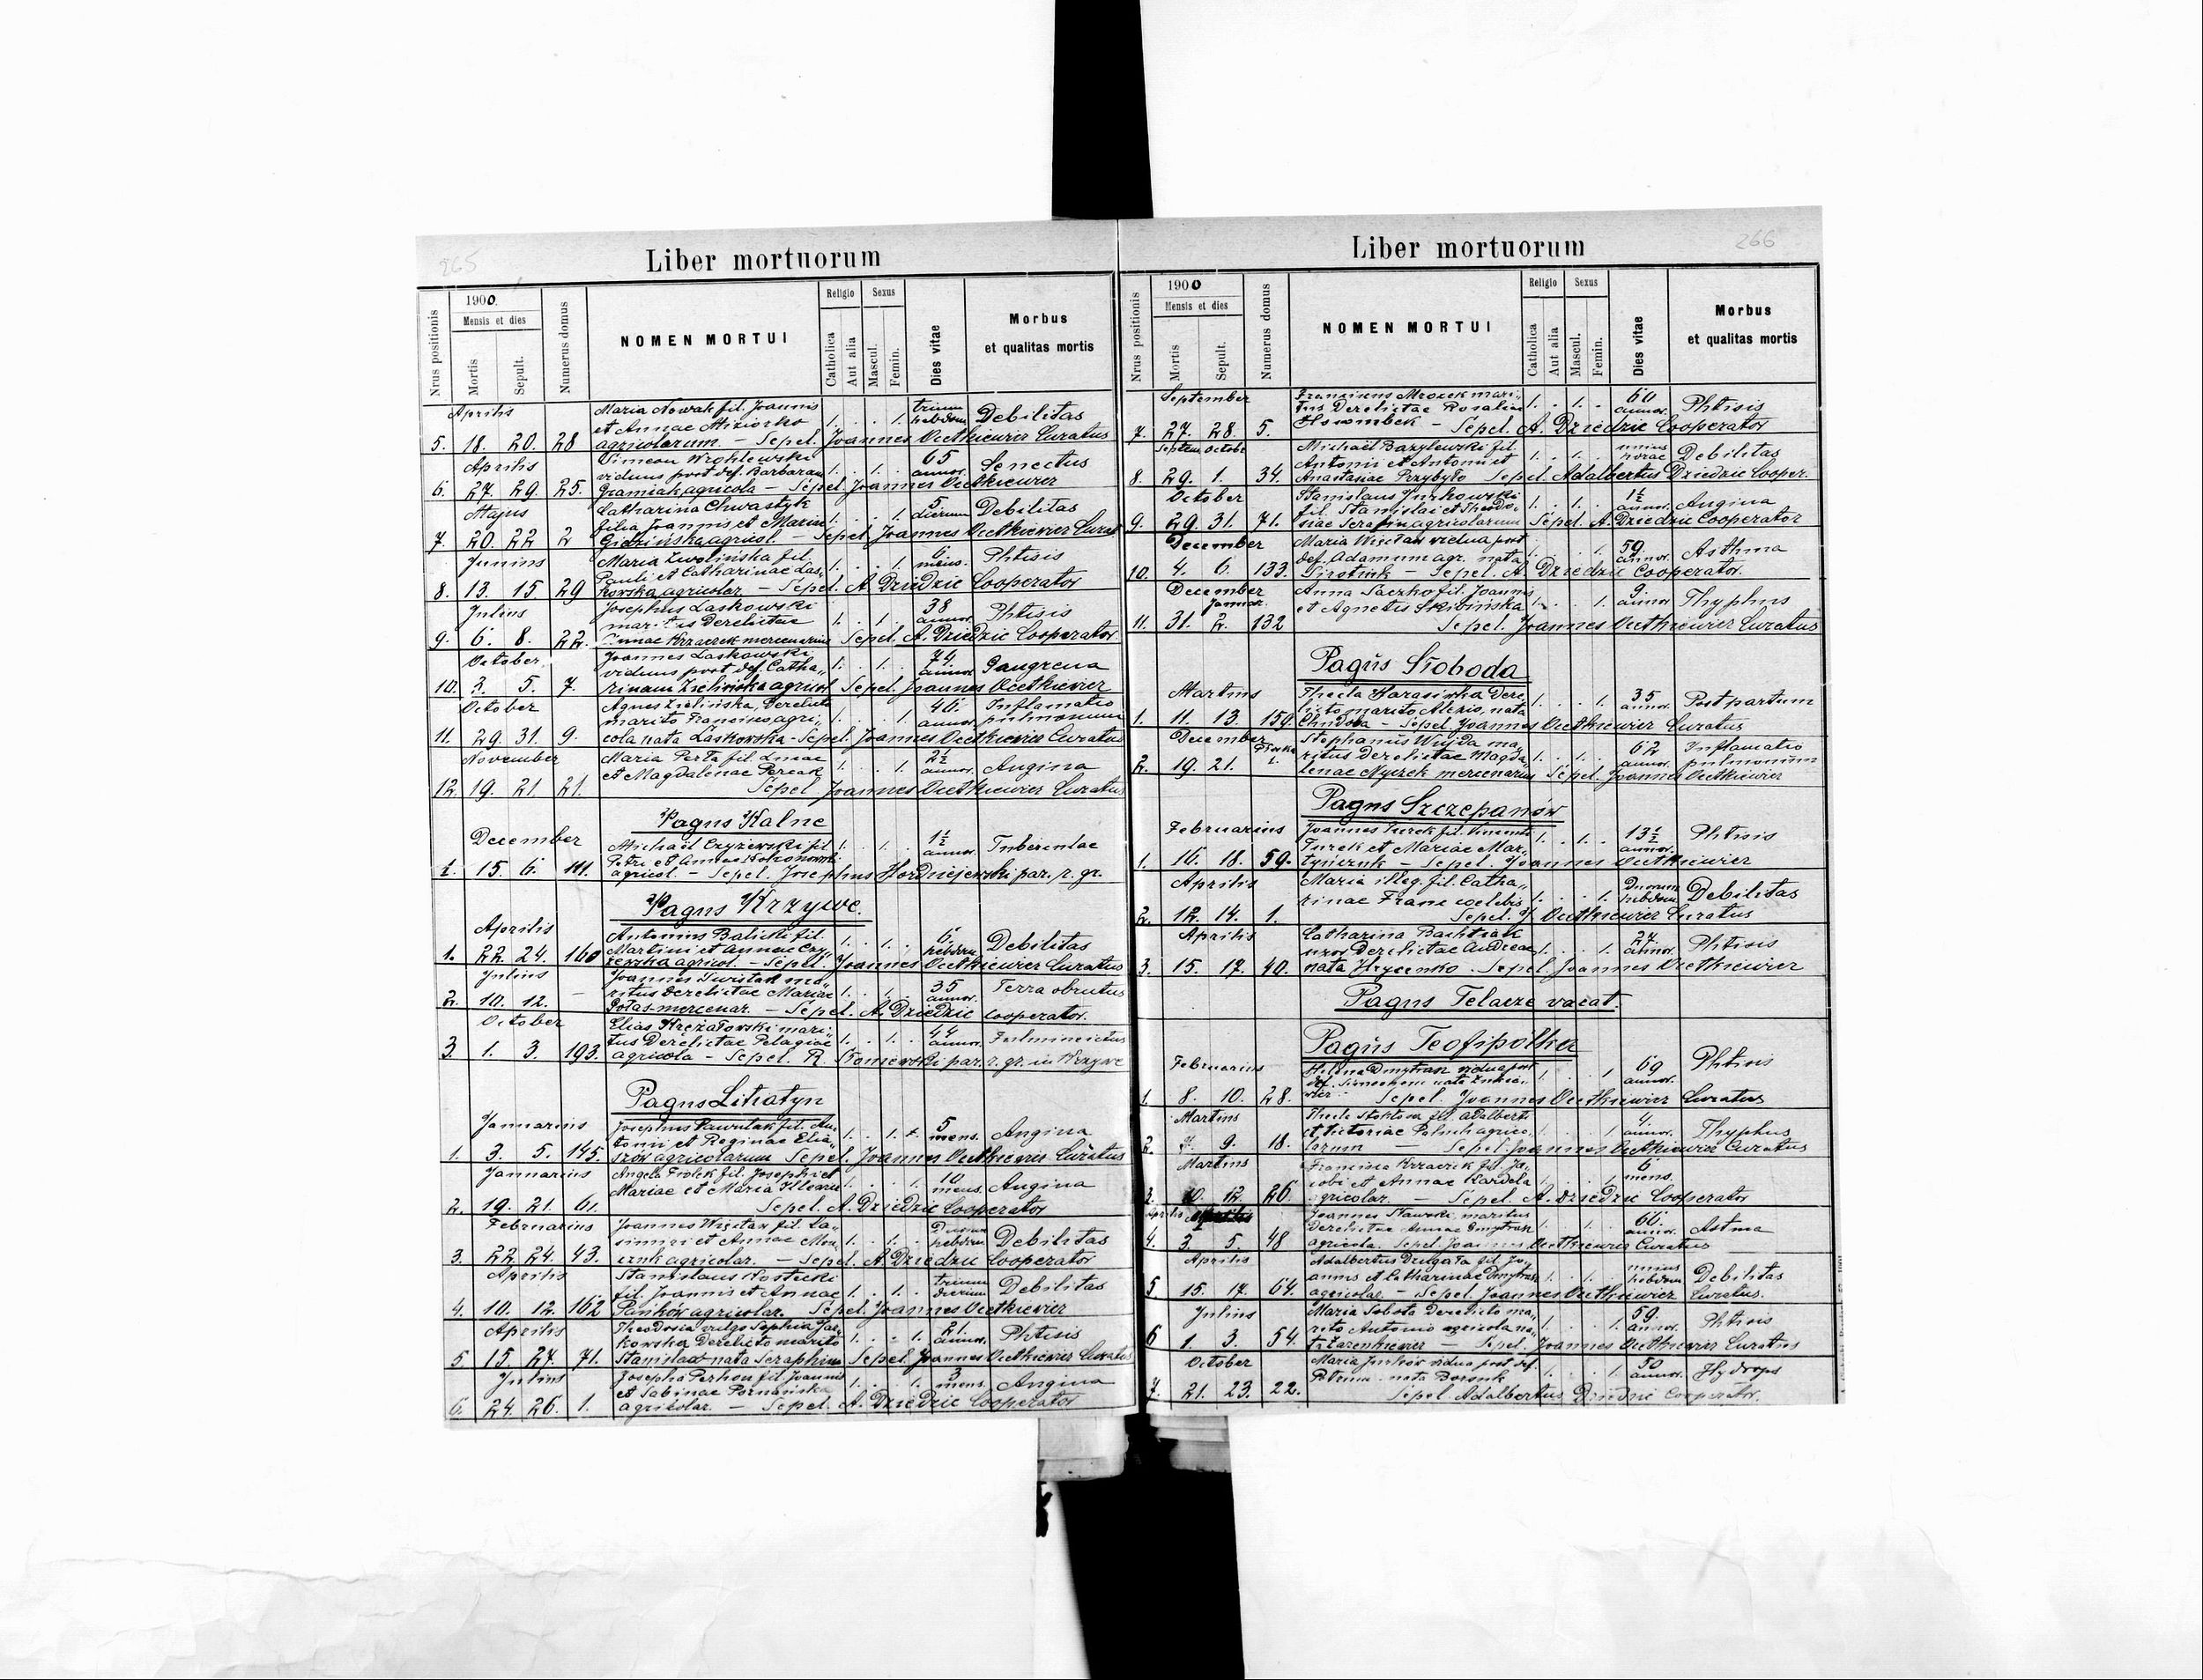 265
Liber mortuorum
Nrus positionis
1900
Mensis et dies
Mortis
Sepult.
Numerus domus
NOMEN MORTUI
Religio
Catholica
Aut alia
Sexus
Mascul.
Femin.
Dies vitae
Morbus
et qualitas mortis
Aprilis Maria Nowak fil. Joannis trium
et Annae Miziorko 1. . . 1. hebdom. Debilitas
5. 18. 20. 28 agricolarum. — Sepel. Joannes Ocetkiewicz Curatus
Aprilis Simeon Wroblewski 65
viduus post def. Barbaram 1. . 1. . annor. Senectus
6. 27. 29. 25. Gramiak agricola — Sepel. Joannes Ocetkiewicz
Majus Catharina Chwastyk 5
filia Joannis et Mariae 1. . . 1. dierum Debilitas
7. 20. 22 2 Gidzińska agricol. — Sepel. Joannes Ocetkiewicz Curat
Junius Maria Zwolińska fil. 6.
Pauli et Catharinae Las„ 1. . . 1. mens. Phtisis
8. 13. 15 29 kowska agricolar. — Sepel. A. Dziedzic Cooperator
Julius Josephus Laskowski 38
maritus Derelictae 1. . 1. . annor. Phtisis
9. 6. 8. 22. Annae Krzaczek mercenarius Sepel. A. Dziedzic Cooperator
October Joannes Laskowski 74
viduus post def. Catha„ 1. . 1. . annor. Gangrena
10. 3. 5. 7. rinam agricol Sepel. Joannes Ocetkiewicz
October Agnes Zielińska, Derelicto 46. Inflamatio
marito Francisco agri„ 1. . . 1. annor. pulmonum
11. 29. 31. 9. cola nata Laskowska - Sepel. Joannes Ocetkiewicz Curatus
November Maria Perta fil. Lucae 2½
et Magdalenae 1. . . 1. annor. Angina
12. 19. 21. 21. Sepel Joannes Ocetkiewicz Curatus
Pagus Kalne
December Michaël Czyżewski fil 1. . 1. . 1½ annor. Tuberculae
Petri et Annae
1. 15. 6. 111. agricol. — Sepel. Josephus Hordziejewski par. r. gr.
Pagus Krzywe.
Aprilis Antonius Balicki fil. 6.
Martini et Annae Czy„ 1. . 1. . hebdom. Debilitas
1. 22. 24. 160 żewska agricol. — Sepel. Joannes Ocetkiewicz Curatus
Julius Joannes ma„ 35
ritus Derelictae Mariae 1. . 1. . annor. Terra obrutus
2. 10. 12. — mercenar. — Sepel. A. Dziedzic Cooperator.
October Elias mari„ 44
tus Derelictae Pelagiae 1. . 1. . annor. Fulmine ictus
3. 1. 3. 193. agricola — Sepel. R. par. r. gr. in Krzywe
Pagus Litiatyn
Januarius Josephus Pawculak fil. An„ 5
tonii et Reginae Elia„ 1. . 1. . mens. Angina
1. 3. 5. 145. szów agricolarum Sepel. Joannes Ocetkiewicz Curatus
Januarius Angela Frolek fil. Josephi et 10
Mariae et Maria 1. . . 1. mens. Angina
2. 19. 21 61. Sepel. A. Dziedzic Cooperator
Februarius Joannes Wisztax fil. Ca„ Duarum
simiri et Annae 1. . 1. . hebdom. Debilitas
3. 22. 24. 43. agricolar. — Sepel. A Dziedzic Cooperator
Aprilis Stanislaus Kostecki trium
fil. Joannis et Annae 1. . 1. . dierum Debilitas
4. 10. 12. 162 Pańków agricolar. Sepel. Joannes Ocetkiewicz
Aprilis Theodosia vulgo Sophia Jur„ 21.
kowska Derelicto marito 1. . . 1. annor. Phtisis
5. 15. 27. 71. Stanislao nata Seraphim Sepel. Joannes Ocetkiewicz Curatus
Julius Josepha Perhon fil Joannis 3
et Sabinae Poznańska 1. . . 1. mens. Angina
6. 24. 26. 1. agricolar. — Sepel. A. Dziedzic Cooperator
266
Liber mortuorum
Nrus positionis
1900
Mensis et dies
Mortis
Sepult.
Numerus domus
NOMEN MORTUI
Religio
Catholica
Aut alia
Sexus
Mascul.
Femin.
Dies vitae
Morbus
et qualitas mortis
September Franciscus Mrozek mari„ 60
tus Derelictae Rosaliae 1. . 1. . annor. Phtisis
7. 27. 28. 5. — Sepel. A. Dziedzic Cooperator
Septem. octobr Michaël Bazylewski fil. unius
Antonii et Antonii et 1. . 1. . horae Debilitas
8. 29. 1. 34. Anastasiae Przybyło Sepel. Adalbertus Dziedzic Cooper.
October Stanislaus Jurkowski 1½
fil. Stanislai et Theodo„ 1. . 1. . annor. Angina
9. 29. 31. 71. siae Serafin agricolarum Sepel. A. Dziedzic Cooperator
December Maria Wisztax vidua post 59.
def. Adamum agr. nata 1. . . 1. annor. Asthma
10. 4. 6. 133. Sirotiuk — Sepel. A. Dziedzic Cooperator.
December Anna Saczko fil. Joannis 9.
Januar. et Agnetis Skibinska 1. . . 1. annor Thyphus
11. 31. 2. 132 Sepel. Joannes Ocetkiewicz Curatus
Pagus Słoboda
Martius Thecla Harasimka Dere„ 35
licto marito Alexio, nata 1. . . 1. annor. Post partum
1. 11. 13. 159. — Sepel. Joannes Ocetkiewicz Curatus
December Stephanus Wujda ma„ 62 Inflamatio
ritus Derelictae Magda„ 1. . 1. . annor. pulmonum
2. 19. 21. 1. lenae Nyczek mercenarius Sepel. Joannes Ocetkiewicz
Pagus Szczepanów
Februarius Joannes Turek fil. Vincentii 13½
Turek et Mariae Mar„ 1. . 1. . annor. Phtisis
1. 16. 18. 59. tyńczuk — Sepel. Joannes Ocetkiewicz
Aprilis Maria illeg. fil. Catha„ Duarum
rinae Franc coelebis 1. . . 1. hebdom. Debilitas
2. 12. 14. 1. Sepel. J. Ocetkiewicz Curatus
Aprilis Catharina Bachtiak 27
uxor Derelictae Andreae 1. . . 1. annor. Phtisis
3. 15. 17. 40. nata Hrycenko - Sepel Joannes Ocetkiewicz
Pagus Telacze vacat.
Pagus Teofipólka
Februarius Helena Dmytrax vidua post 69
def. Simeonem nata 1. . . 1 annor. Phtisis
1. 8. 10. 28. Sepel. Joannes Ocetkiewicz Curatus
Martius Thecla Stokłosa fil. Adalberti 4.
et Victoriae Paluch agrico„ 1. . . 1 annor. Thyphus
2. 7. 9. 18. larum — Sepel. Joannes Ocetkiewicz Curatus
Martius Francisca Krzaczek fil. Ja„ 6
cobi et Annae Kardela 1. . . 1. mens.
3. 10. 12. 26. agricolar. — Sepel. A. Dziedzic Cooperator
Aprilis Joannes maritus 60.
Derelictae Annae Dmytrax 1. . 1. . annor. Astma
4. 3. 5. 48 agricola. Sepel. Joannes Ocetkiewicz Curatus
Aprilis Adalbertus Drugała fil. Jo„ unius
annis et Catharinae Dmytrax 1. . 1. . hebdom. Debilitas
5 15. 17. 64. agricolar. — Sepel. Joannes Ocetkiewicz Curatus.
Julius Maria Sobota Derelicto ma„ 59.
rito Antonio agricola na„ 1. . . 1. annor. Phtisis
6 1. 3. 54. ta — Sepel. Joannes Ocetkiewicz Curatus
October Maria Jurków vidua post def. 50
nata Borsuk 1. . . 1. annor. Hydrops
7. 21. 23. 22. Sepel. Adalbertus Dziedzic Cooperator.